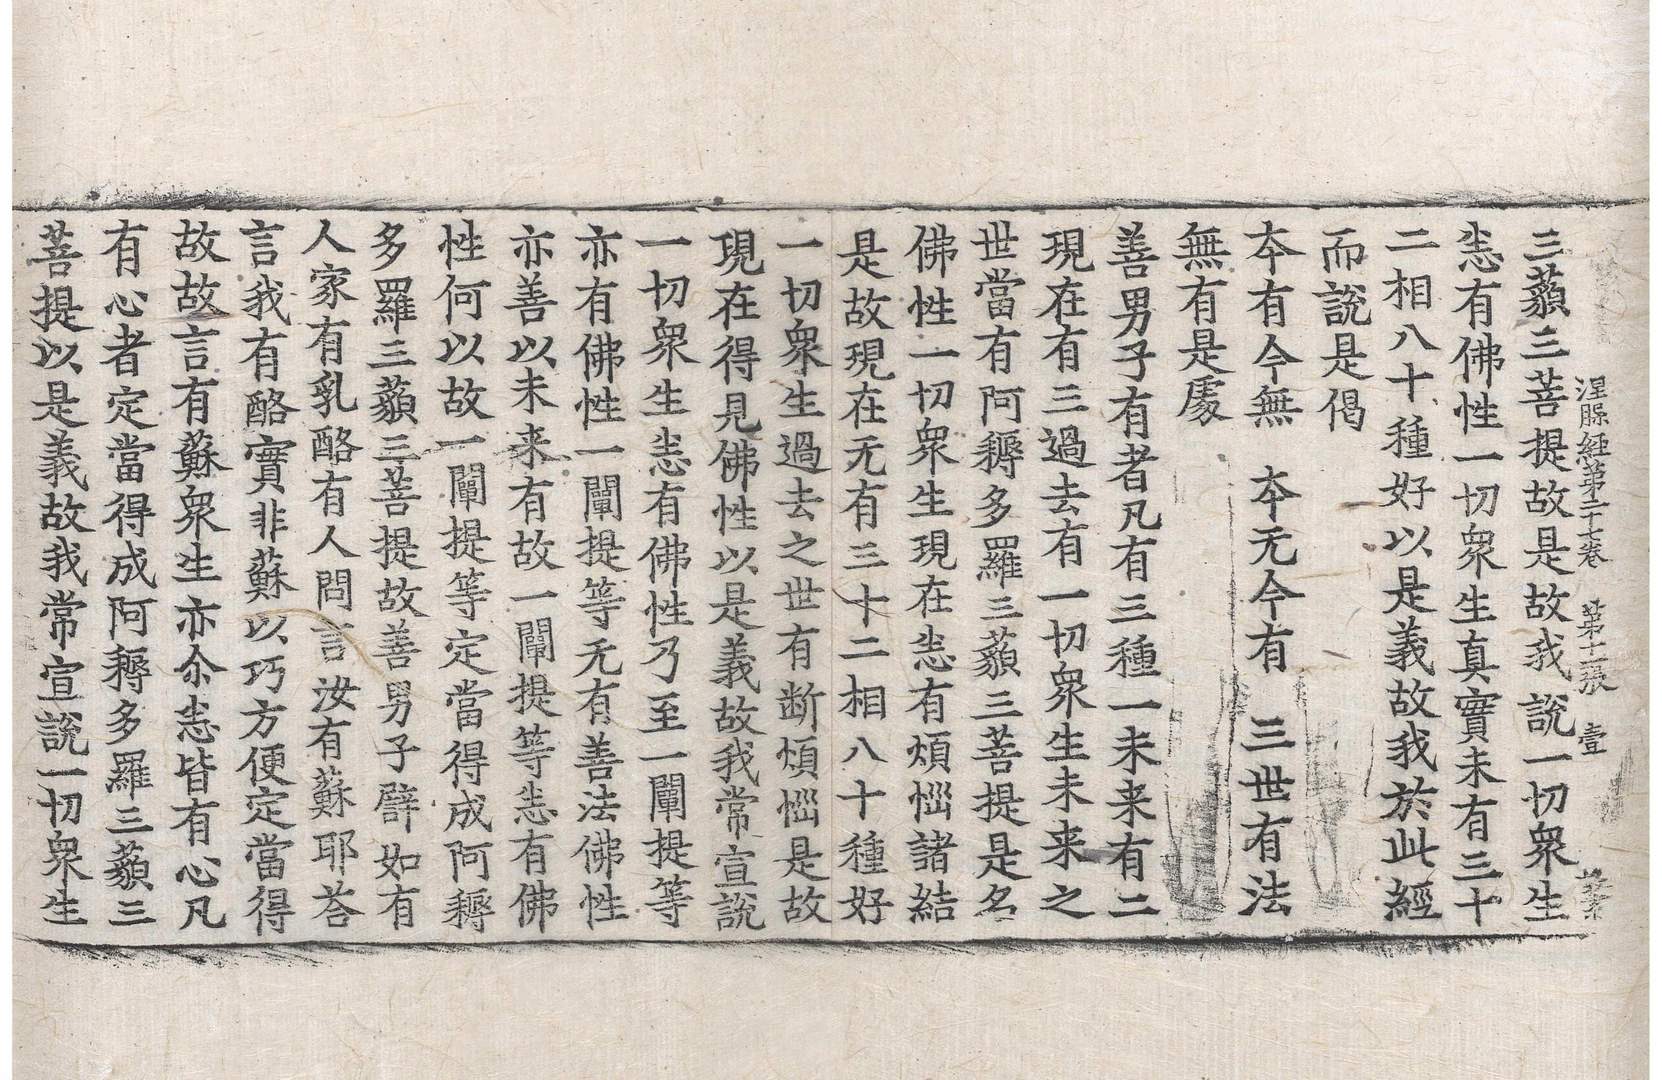 涅槃經第二十七卷 第十二張 壹
三藐三菩提故是故我說一切眾生
悉有佛性一切眾生真實未有三十
二相八十種好以是義故我於此經
而說是偈
本有今無 本无今有 三世有法
無有是處
善男子有者凡有三種一未来有二
現在有三過去有一切眾生未来之
世當有阿耨多羅三藐三菩提是名
佛性一切眾生現在悉有煩惱諸結
是故現在无有三十二相八十種好
一切眾生過去之世有断煩惱是故
現在得見佛性以是義故我常宣說
一切眾生悉有佛性乃至一闡提等
亦有佛性一闡提等无有善法佛性
亦善以未来有故一闡提等悉有佛
性何以故一闡提等定當得成阿耨
多羅三藐三菩提故善男子譬如有
人家有乳酪有人問言汝有蘇耶荅
言我有酪實非蘇以巧方便定當得
故故言有蘇眾生亦尒悉皆有心凡
有心者定當得成阿耨多羅三藐三
菩提以是義故我常宣說一切眾生